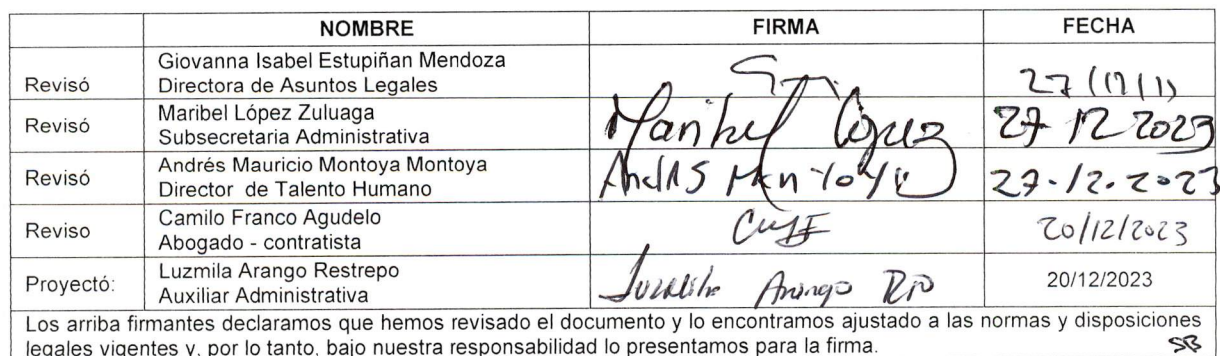 NOMBRE FIRMA FECHA
Giovanna Isabel Estupiñan Mendoza
Revisó Directora de Asuntos Legales
Maribel López Zuluaga
Revisó Subsecretaria Administrativa Maribel López 27 12 2023
Andrés Mauricio Montoya Montoya
Revisó Director de Talento Humano Andrés Montoya 27.12.2023
Camilo Franco Agudelo
Reviso Abogado - contratista 20/12/2023
Luzmila Arango Restrepo
Proyectó: Auxiliar Administrativa Luzmila Arango 20/12/2023
Los arriba firmantes declaramos que hemos revisado el documento y lo encontramos ajustado a las normas y disposiciones
legales vigentes y, por lo tanto, bajo nuestra responsabilidad lo presentamos para la firma. SB